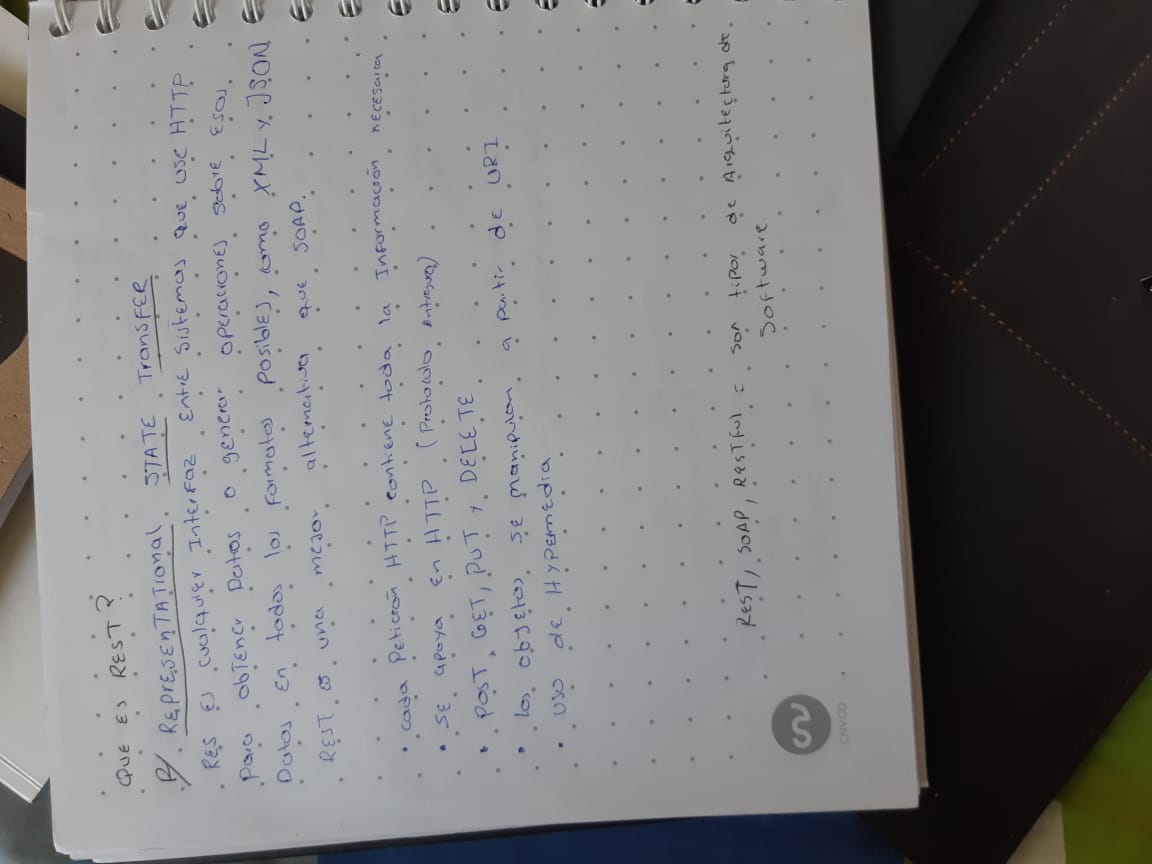 QUE ES REST?
R/ REPRESENTATIONAL STATE TRANSFER
RES ES cualquier Interfaz Entre Sistemas que use HTTP
Para obtener Datos o generar operaciones sobre Esos
Datos En todos los formatos posibles, como XML y JSON
REST es una mejor alternativa que SOAP.
• cada Petición HTTP contiene toda la Información necesaria
• SE apoya En HTTP (Protocolo
• POST, GET, PUT y DELETE
• Los objetos se manipulan a partir de URI
• USO de Hypermedia
REST, SOAP, RESTFUL = son tipos de Arquitectura de
Software.
CNVDO